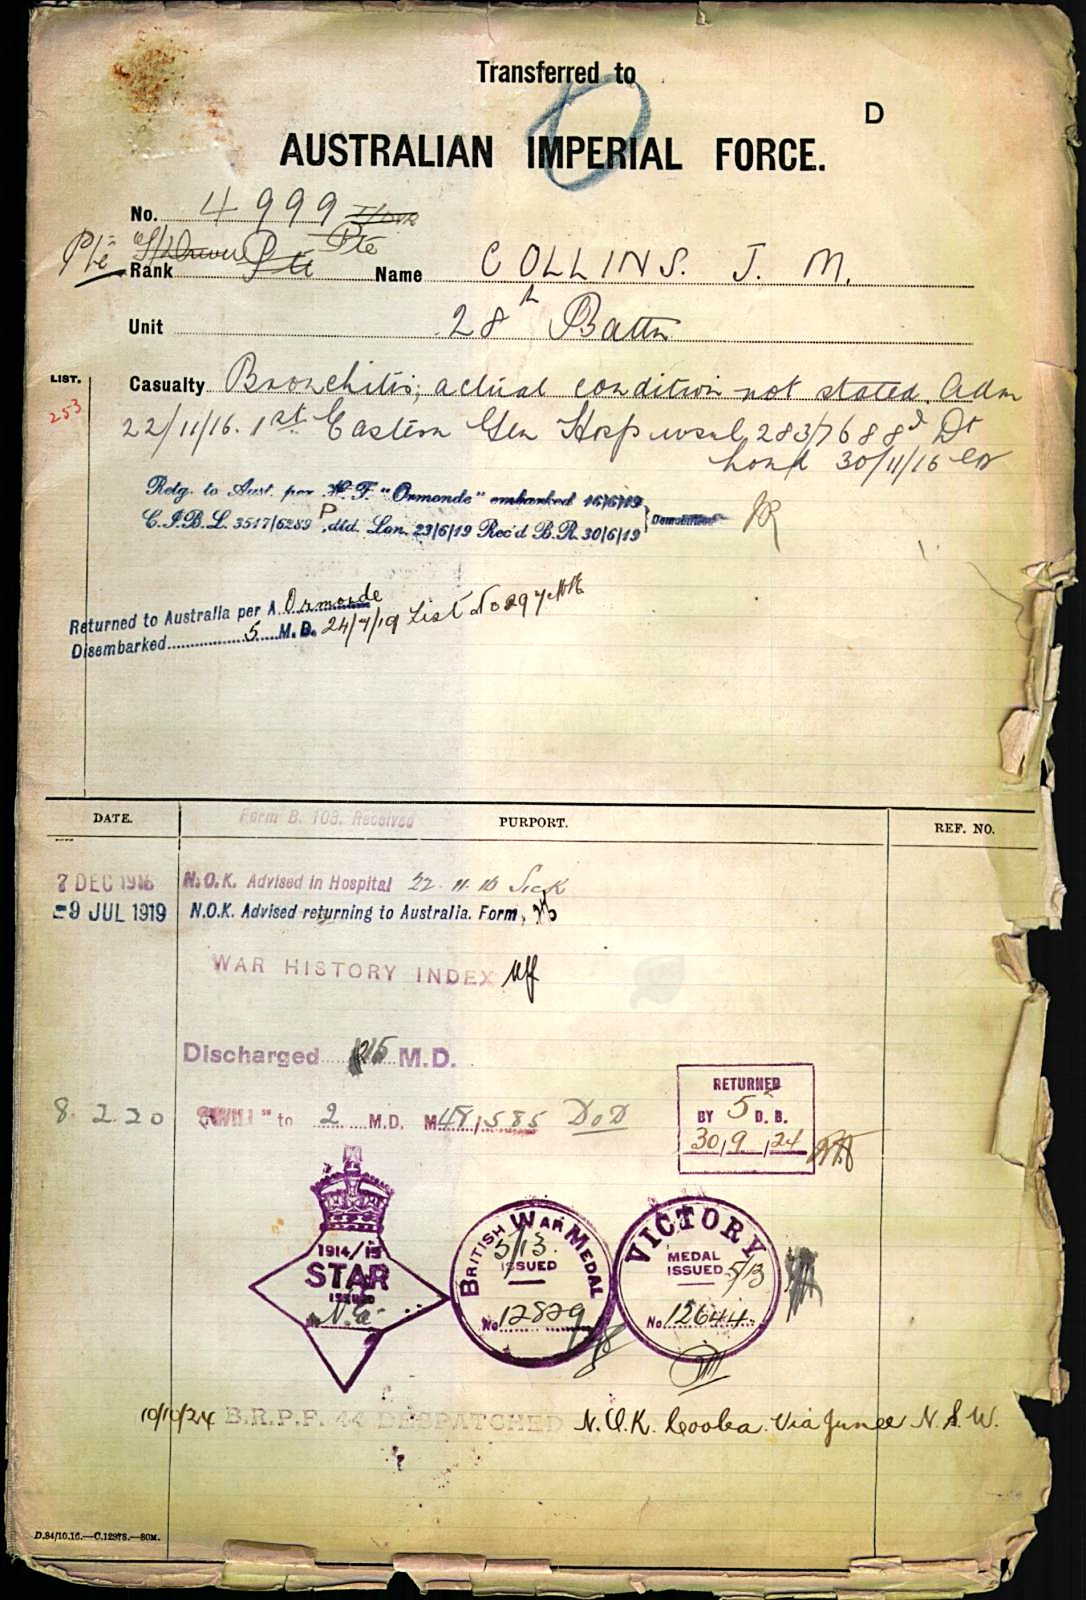 Transferred to
D
AUSTRALIAN IMPERIAL FORCE.
No. 4999
Pte Pte Pte
Rank Name COLLINS. J. M.
Unit 28th Battn
LIST. 253
Casualty Bronchitis; actual condition not stated. Adm
22/11/16. 1st Eastern Gen Hosp 283/7688 Dt
Lond 30/11/16
Retg. to Aust. per H.T. "Ormonde" embarked 16/6/19
C.I.B.L. 3517/6289 P, dtd. Lon. 23/6/19 Rec'd B.R. 30/6/19
Returned to Australia per A. Ormonde
Disembarked 5 M.D. 24/7/19 List No 297
DATE. Form B. 103. Received PURPORT. REF. NO.
7 DEC 1916 N.O.K. Advised in Hospital 22.11.16 Sick
-9 JUL 1919 N.O.K. Advised returning to Australia. Form,
WAR HISTORY INDEX
Discharged 5 M.D.
8.2.20 "WILL" to 2 M.D. M48/585 DoD
RETURNED
BY 5 D.B.
30/9/24
1914/15
STAR
ISSUED
N.E.
BRITISH WAR MEDAL
5/13.
ISSUED
No 12829
VICTORY
MEDAL
ISSUED 5/13
No. 12644
10/10/24 B.R.P.F. 44 DESPATCHED N.O.K. Cooba. Via Junee N.S.W.
D.84/10.16.—C.12978.—80M.